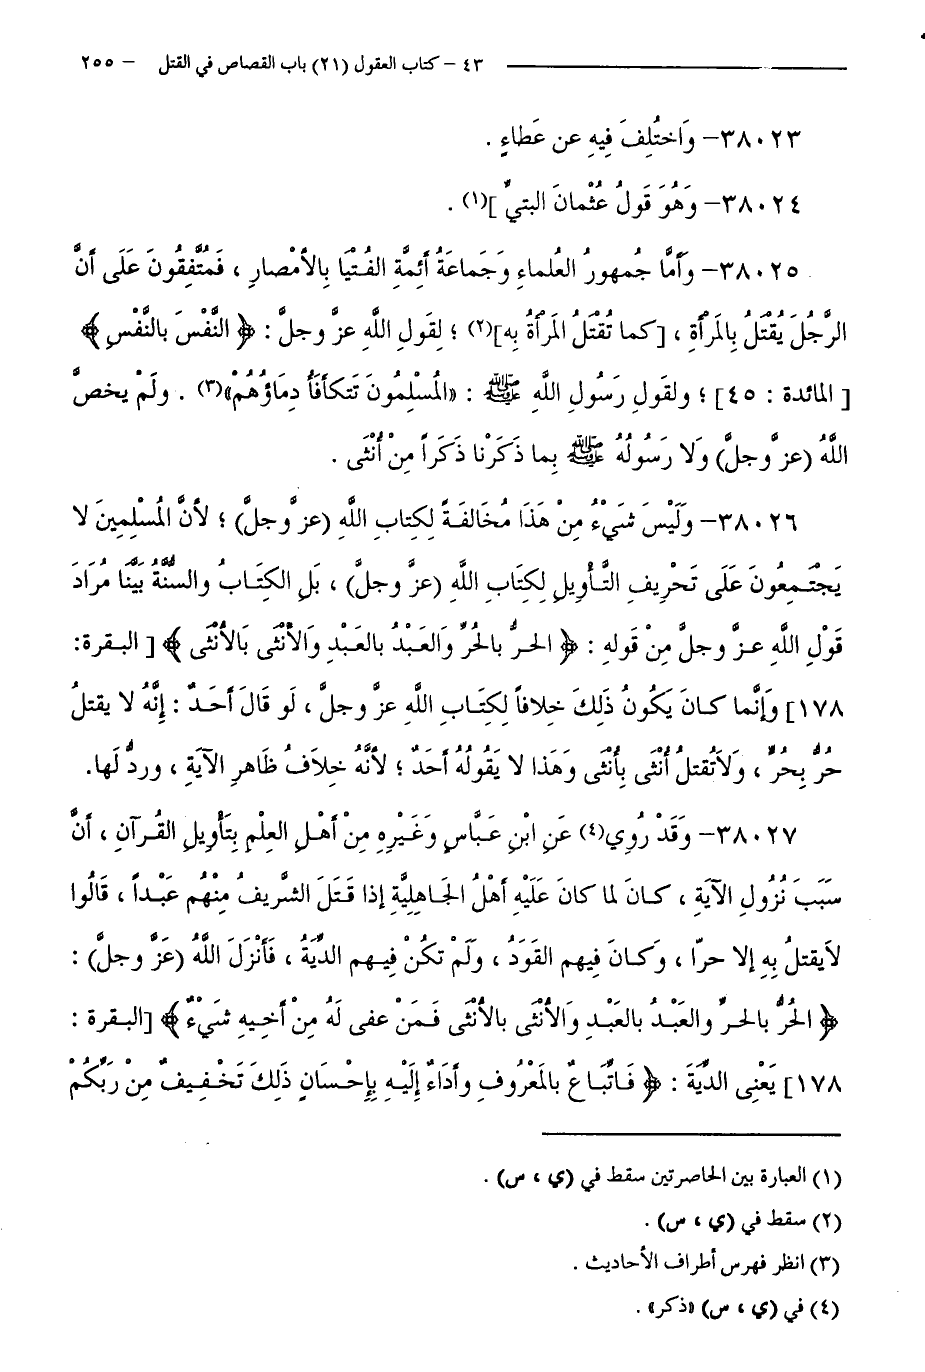 ٤٣ – كتاب العقول (٢١) باب القصاص في القتل – ٢٥٥
٣٨٠٢٣– وَاختُلِفَ فِيهِ عن عَطَاءٍ .
٣٨٠٢٤– وَهُوَ قَولُ عُثْمانَ البتيِّ ](١) .
٣٨٠٢٥– وَأَمَّا جُمهورُ العُلماءِ وَجَماعَةُ أَئِمَّةِ الفُتْيَا بِالأَمْصارِ ، فَمُتَّفِقُونَ عَلَى أنَّ
الرَّجُلَ يُقْتَلُ بِالمَرأَةِ ، [كما تُقْتَلُ المَرأَةُ بِهِ](٢) ؛ لِقَولِ اللَّهِ عزَّ وجلَّ : ﴿ النَّفْسَ بالنَّفْسِ ﴾
[ المائدة : ٤٥] ؛ ولقولِ رَسُولِ اللَّهِ ﷺ : «المُسْلِمُونَ تَتَكافَأُ دِمَاؤُهُمْ»(٣) . ولَمْ يخصَّ
اللَّهُ (عزَّ وجلَّ) وَلا رَسُولُهُ ﷺ بِما ذَكَرْنا ذَكَراً مِنْ أُنْثَى .
٣٨٠٢٦– وَلَيْسَ شَيْءٌ مِنْ هَذَا مُخَالَفَةً لِكتابِ اللَّهِ (عزَّ وجلَّ) ؛ لأنَّ المُسْلِمِينَ لا
يَجتَمِعُونَ عَلَى تَحْرِيفِ التَّأوِيلِ لِكتَابِ اللَّهِ (عزَّ وجلَّ) ، بَلِ الكِتَابُ والسنَّةُ بَيَّنا مُرَادَ
قَوْلِ اللَّهِ عزَّ وجلَّ مِنْ قولِهِ : ﴿ الحرُّ بالحُرِّ وَالعَبْدُ بالعَبْدِ وَالأُنْثى بَالأُنْثى ﴾ [ البقرة:
١٧٨] وَإِنَّما كانَ يَكُونُ ذَلِكَ خِلافاً لِكتَابِ اللَّهِ عزَّ وجلَّ ، لَو قالَ أَحَدٌ : إنَّهُ لا يقتلُ
حُرٌّ بِحُرٍّ ، ولاَتُقتلُ أُنْثى بِأُنْثى وَهَذا لا يَقُولُهُ أَحَدٌ ؛ لأنَّهُ خِلاَفُ ظَاهِرِ الآيَةِ ، وردٌّ لَها.
٣٨٠٢٧– وَقَدْ رُوِي(٤) عَنِ ابْنِ عَبَّاسٍ وَغَيْرِهِ مِنْ أَهْلِ العِلْمِ بِتَأوِيلِ القُرآنِ ، أنَّ
سَبَبَ نُزُولِ الآيَةِ ، كانَ لما كانَ عَلَيْهِ أهْلُ الجَاهِليَّةِ إذا قَتَلَ الشَّرِيفُ مِنْهُم عَبْداً ، قَالُوا
لاَيقتلُ بِهِ إلا حرّا ، وكانَ فِيهم القَوَدُ ، ولَمْ تكُنْ فِيهِم الدِّيَةُ ، فَأَنْزَلَ اللَّهُ (عَزَّ وجلَّ) :
﴿ الحُرُّ بالحرِّ والعَبْدُ بالعَبْدِ وَالأُنْثى بالأُنْثى فَمَنْ عفى لَهُ مِنْ أخِيهِ شَيْءٌ ﴾ [البقرة :
١٧٨] يَعْنِي الدِّيَةَ : ﴿ فَاتِّبَاعٌ بالمَعْرُوفِ وأدَاءٌ إلَيْهِ بِإحْسَانٍ ذَلِكَ تَخْفِيفٌ مِنْ رَبِّكُمْ
(١) العبارة بين الحاصرتين سقط في (ي ، س) .
(٢) سقط في (ي ، س) .
(٣) انظر فهرس أطراف الأحاديث .
(٤) في (ي ، س) «ذكر» .